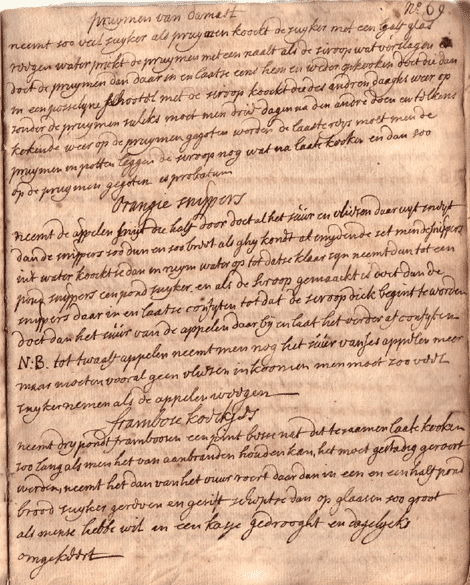 pruijmen van damast No. 69
neemt soo veel suijker als pruijmen koockt de suijker met een half glas
roosen water prickt de pruijmen met een naalt als de siroop wat verslagen is
doet de pruijmen dan daar in en laatse eens heen en weder gekooken doet die dan
in een posselijne schootel met de siroop koockt die des anderen daaghs weer op
sonder de pruijmen sulcks moet men drie dagen na den andre doen en telkens
kokende weer op de pruijmen gegoten worden de laaste reijs moet men de
pruijmen in potten leggen de siroop nog wat na laate kooken en dan soo
op de pruijmen gegoten is probatum
Orangie snippers
neemt de appelen snijt die half door doet al het süür en vliesen daar uyt snijt
dan de snippers soo dun en soo breet als ghij kondt al snijdende set men de snippers
in't water koockt se dan in ruijm water op tot datse klaar sijn neemt dan tot een
pond snippers een pond suijker en als de siroop gemaackt is doet dan de
snippers daar in en laatse confijten tot dat de siroop dick begint te worden
doet dan het süür van de appelen daar bij en laat het verder af confijten
N:B. tot twaalf appelen neemt men nog het süür van ses appelen meer
maar moeten vooral geen vliesen in koomen men moet zoo veel
suijker nemen als de appelen weegen
frambose koeckjes
neemt drij pond frambosen een pint besse nat dit te saamen laate kooken
zoo lang als men het van aanbranden houden kan, het moet gestadig geroert
werden, neemt het dan van het vuer roert daar dan in een en een half pond
brood suijker gereven en gesift schept se dan op glaasen soo groot
als mense hebbe wil en in een kasje gedrooght en dagelijks
omgekeert